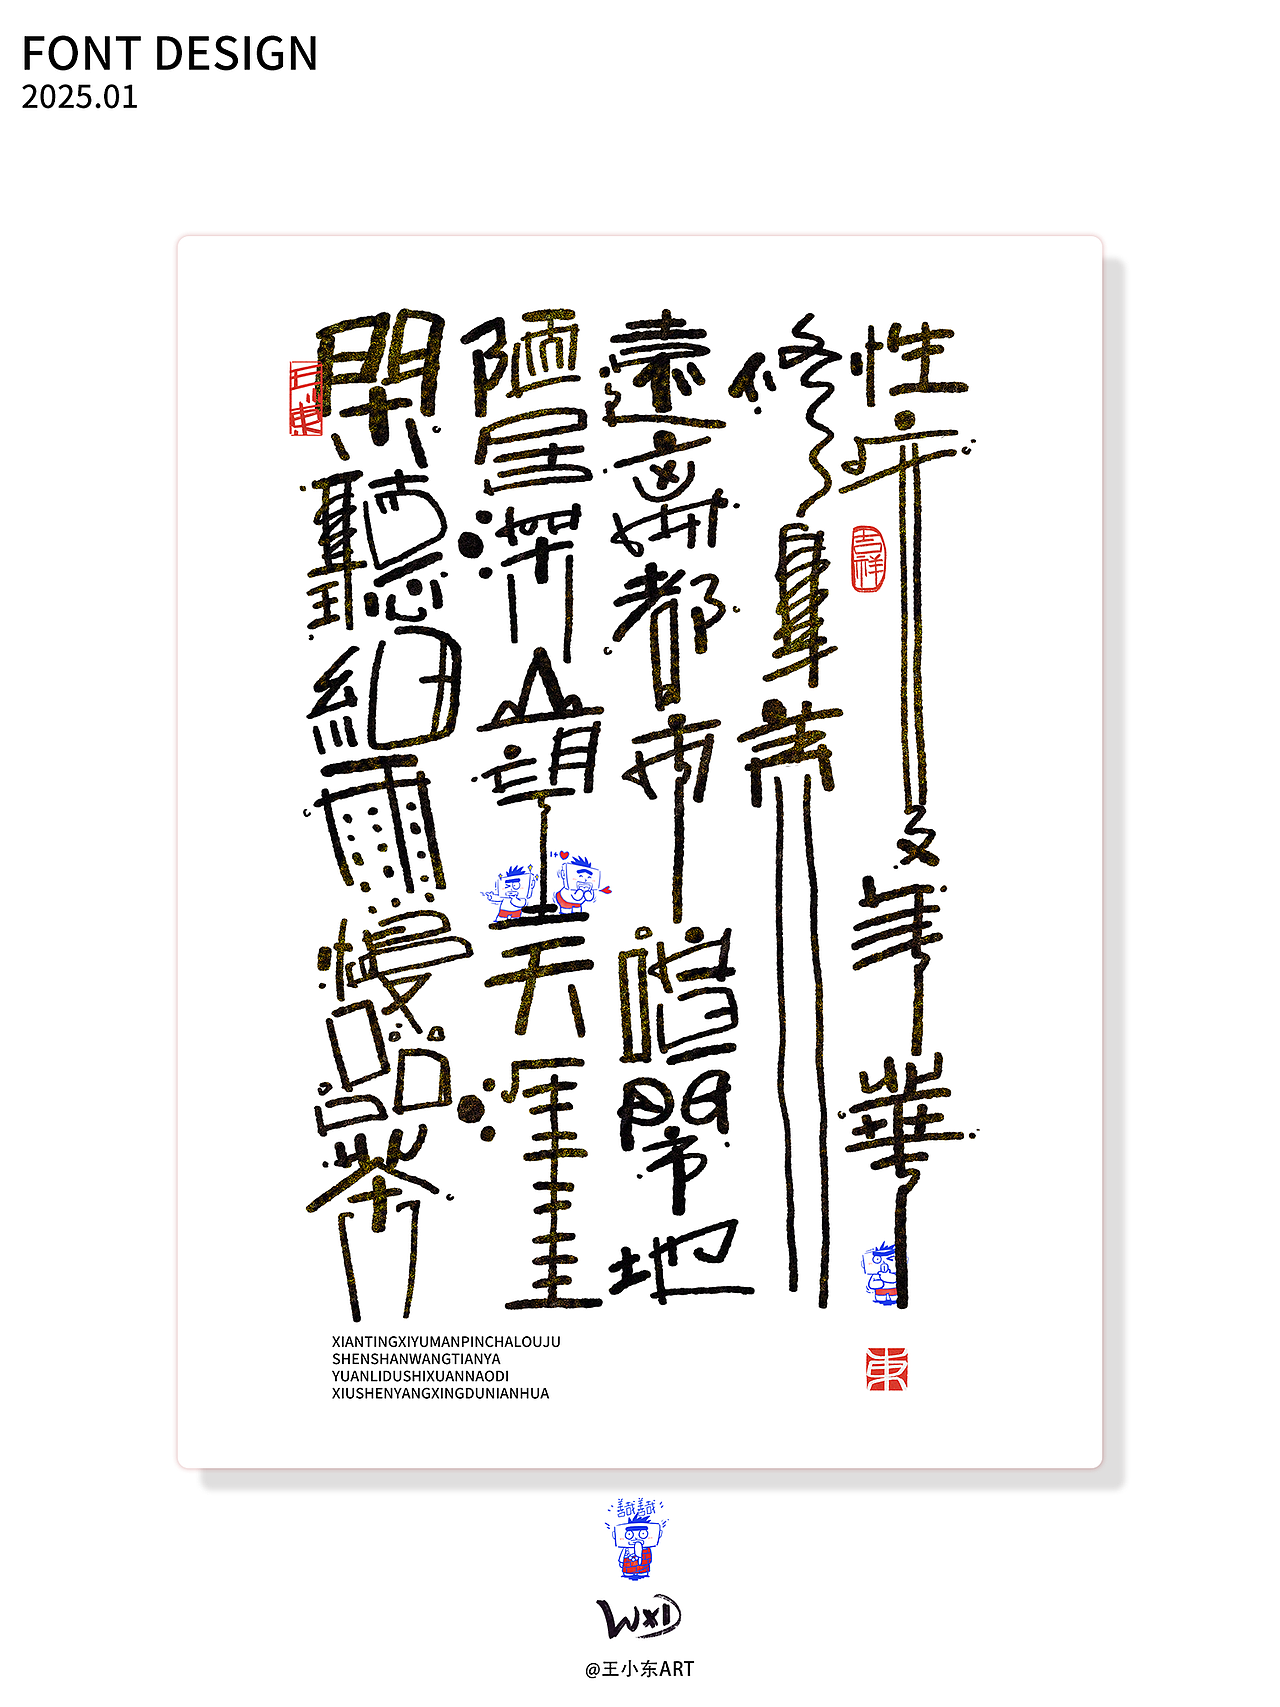 FONT DESIGN
2025.01
閑聽細雨慢品茶
陋居深山望天涯
遠離都市喧鬧地
修身養
性度年華
吉祥
東
XIANTINGXIYUMANPINCHALOUJU
SHENSHANWANGTIANYA
YUANLIDUSHIXUANNAODI
XIUSHENYANGXINGDUNIANHUA
WXD
@王小东ART